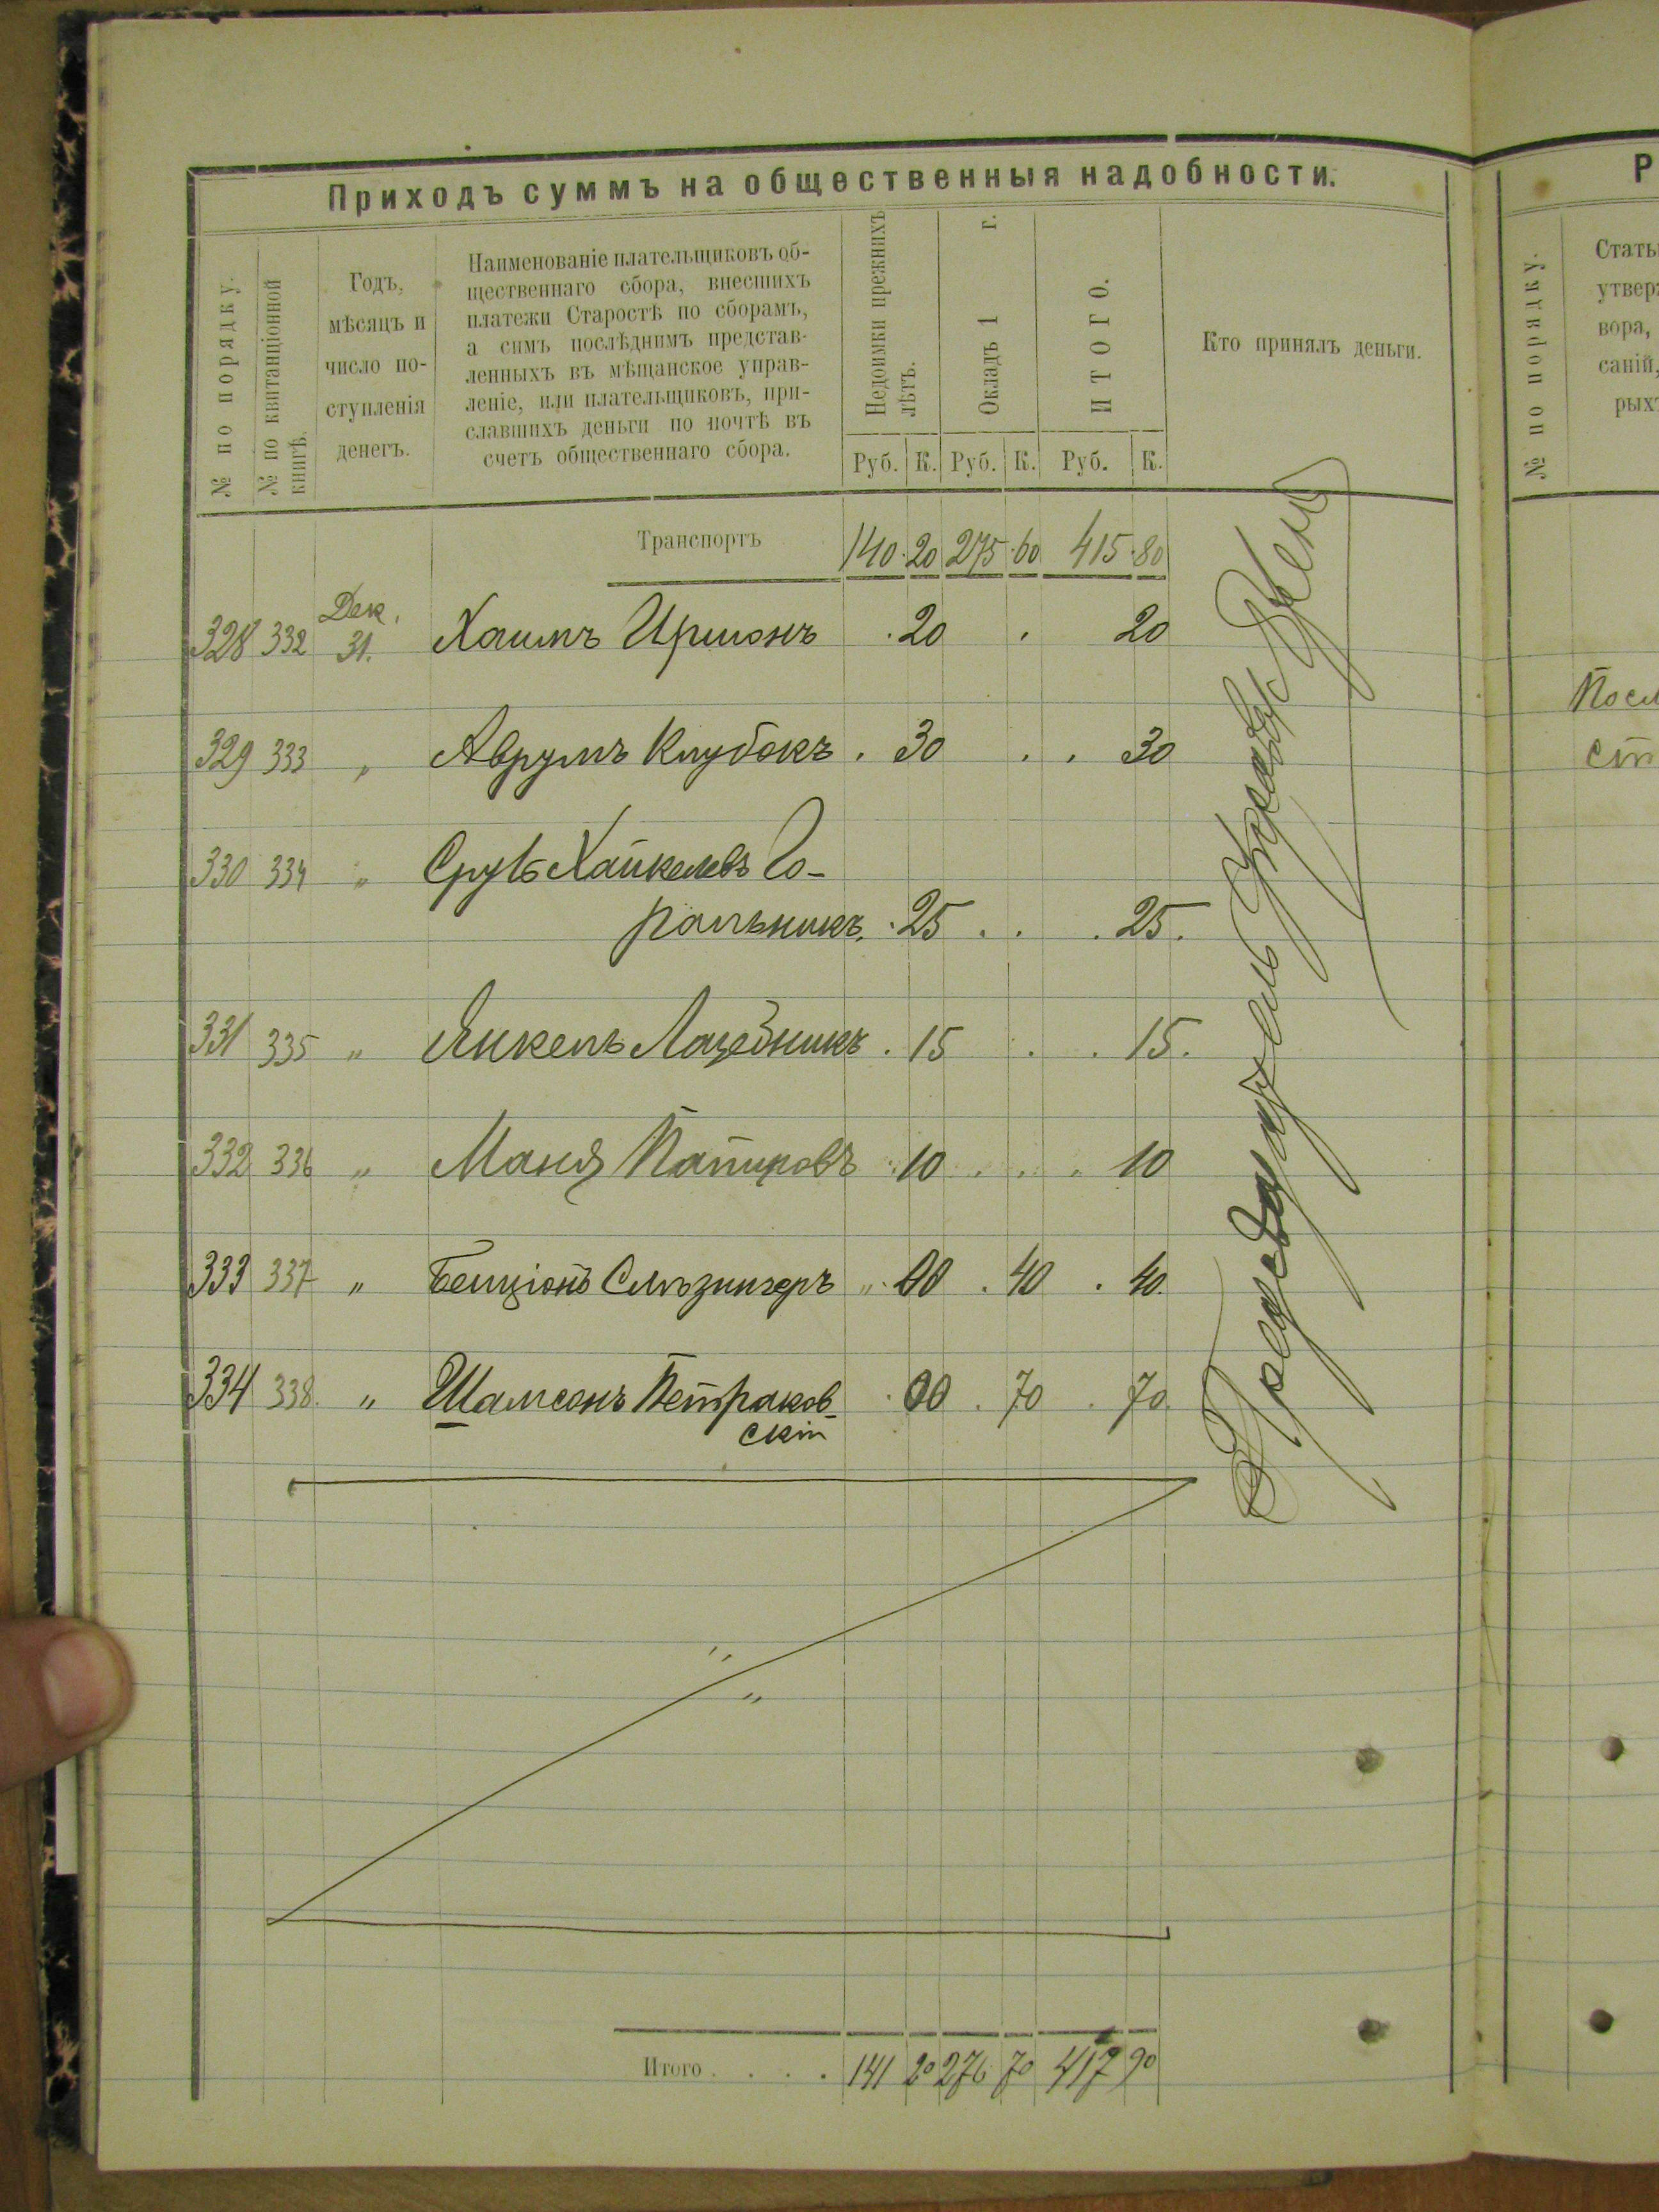 Приходъ суммъ на общественныя надобности.
№ по порядку.
№ по квитанціонной
книгѣ.
Годъ,
мѣсяцъ и
число по-
ступленія
денегъ.
Наименованіе плательщиковъ об-
щественнаго сбора, внесшихъ
платежи Старостѣ по сборамъ,
а симъ послѣднимъ представ-
ленныхъ въ мѣщанское управ-
леніе, или плательщиковъ, при-
славшихъ деньги по почтѣ въ
счетъ общественнаго сбора.
Недоимки прежнихъ
лѣтъ.
Окладъ 1 г.
ИТОГО.
Кто принялъ деньги.
Руб. К. Руб. К. Руб. К.
Транспортъ 140 20 275 60 415 80
328 332 Дек. 31. Хаимъ Иршонъ 20 20
329 333 „ Аврумъ Клубокъ 30 30
330 334 „ Сруль Хайкелевъ Го-
ральникъ 25 25.
331 335 „ Янкель Лазебникъ 15 15.
332 336 „ Маня Папировъ 10 10
333 337 „ Бенціонъ 00 40 40.
334 338. „ Шамсонъ Петраков-
скій 00 70 70
Итого 141 20 276 70 417 90
Р
№ по порядку.
Стать
утверж
вора,
саній,
рыхъ
Посл
ст